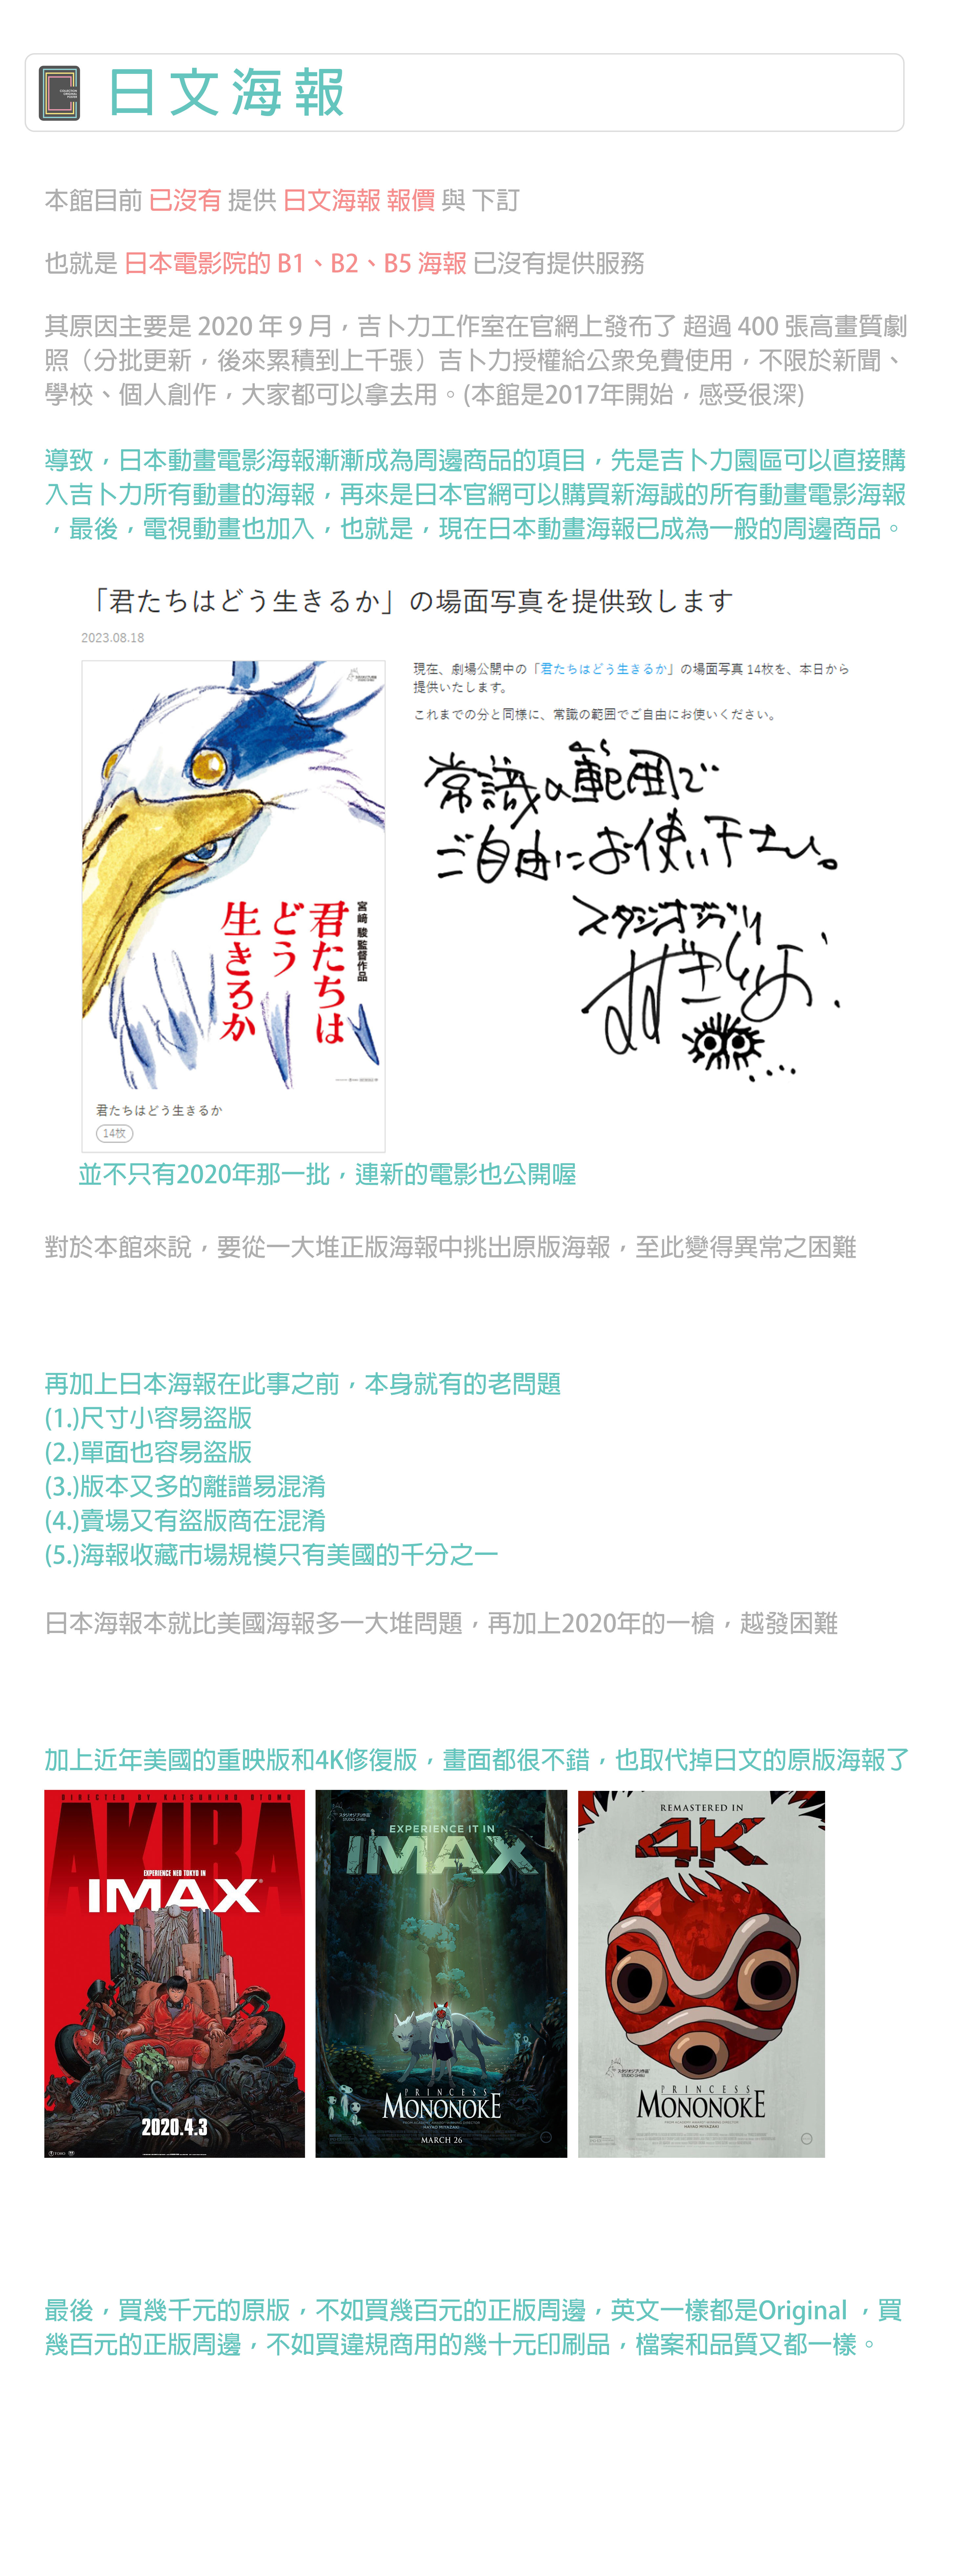 日文海報
本館目前 已沒有 提供 日文海報 報價 與 下訂
也就是 日本電影院的 B1、B2、B5 海報 已沒有提供服務
其原因主要是 2020 年 9 月，吉卜力工作室在官網上發布了 超過 400 張高畫質劇
照（分批更新，後來累積到上千張）吉卜力授權給公眾免費使用，不限於新聞、
學校、個人創作，大家都可以拿去用。(本館是2017年開始，感受很深)
導致，日本動畫電影海報漸漸成為周邊商品的項目，先是吉卜力園區可以直接購
入吉卜力所有動畫的海報，再來是日本官網可以購買新海誠的所有動畫電影海報
，最後，電視動畫也加入，也就是，現在日本動畫海報已成為一般的周邊商品。
「君たちはどう生きるか」の場面写真を提供致します
2023.08.18
現在、劇場公開中の「君たちはどう生きるか」の場面写真 14枚を、本日から
提供いたします。
これまでの分と同様に、常識の範囲でご自由にお使いください。
常識の範囲で
ご自由にお使い下さい。
スタジオジブリ
宮﨑 駿監督作品
君たちは
どう
生きるか
君たちはどう生きるか
14枚
並不只有2020年那一批，連新的電影也公開喔
對於本館來說，要從一大堆正版海報中挑出原版海報，至此變得異常之困難
再加上日本海報在此事之前，本身就有的老問題
(1.)尺寸小容易盜版
(2.)單面也容易盜版
(3.)版本又多的離譜易混淆
(4.)賣場又有盜版商在混淆
(5.)海報收藏市場規模只有美國的千分之一
日本海報本就比美國海報多一大堆問題，再加上2020年的一槍，越發困難
加上近年美國的重映版和4K修復版，畫面都很不錯，也取代掉日文的原版海報了
DIRECTED BY KATSUHIRO OTOMO
AKIRA
EXPERIENCE NEO TOKYO IN
IMAX
2020.4.3
TOHO
スタジオジブリ作品
STUDIO GHIBLI
EXPERIENCE IT IN
IMAX
PRINCESS
MONONOKE
HAYAO MIYAZAKI
MARCH 26
REMASTERED IN
4K
スタジオジブリ作品
STUDIO GHIBLI
PRINCESS
MONONOKE
HAYAO MIYAZAKI
最後，買幾千元的原版，不如買幾百元的正版周邊，英文一樣都是Original ，買
幾百元的正版周邊，不如買違規商用的幾十元印刷品，檔案和品質又都一樣。